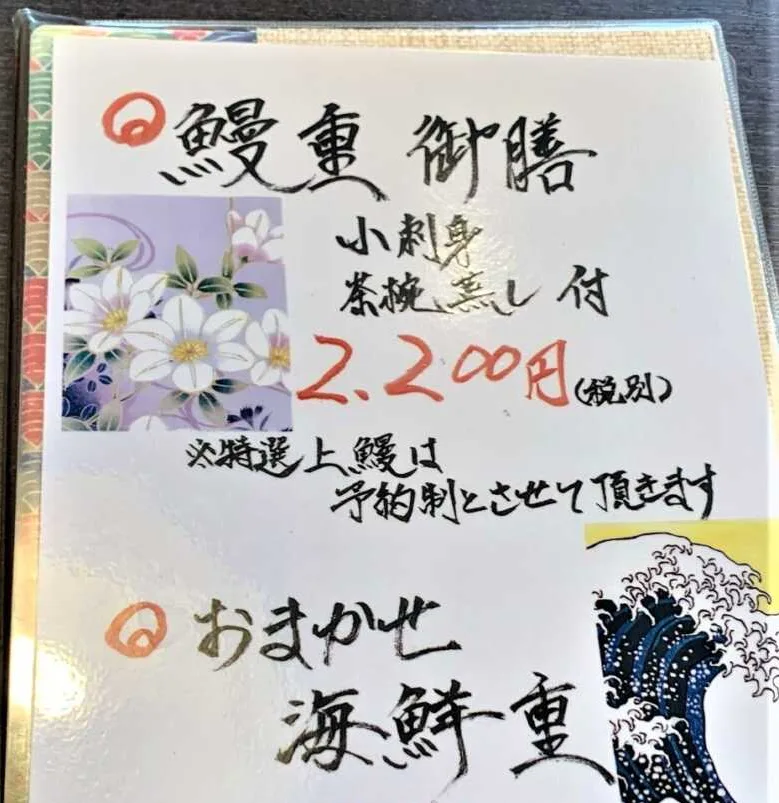 鰻重 御膳
小刺身
茶椀蒸し 付
2.200円(税別)
※特選上鰻は
予約制とさせて頂きます
おまかせ
海鮮重